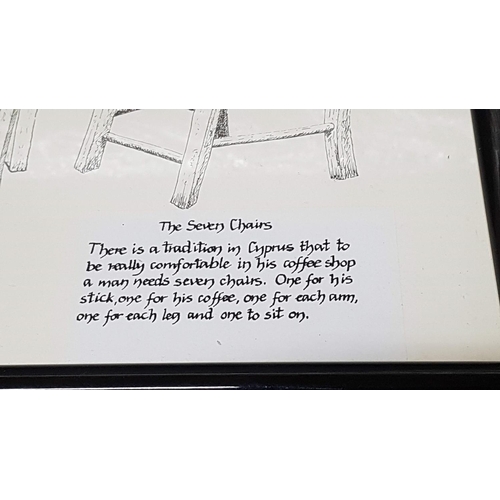 The Seven Chairs
There is a tradition in Cyprus that to
be really comfortable in his coffee shop
a man needs seven chairs. One for his
stick, one for his coffee, one for each arm,
one for each leg and one to sit on.